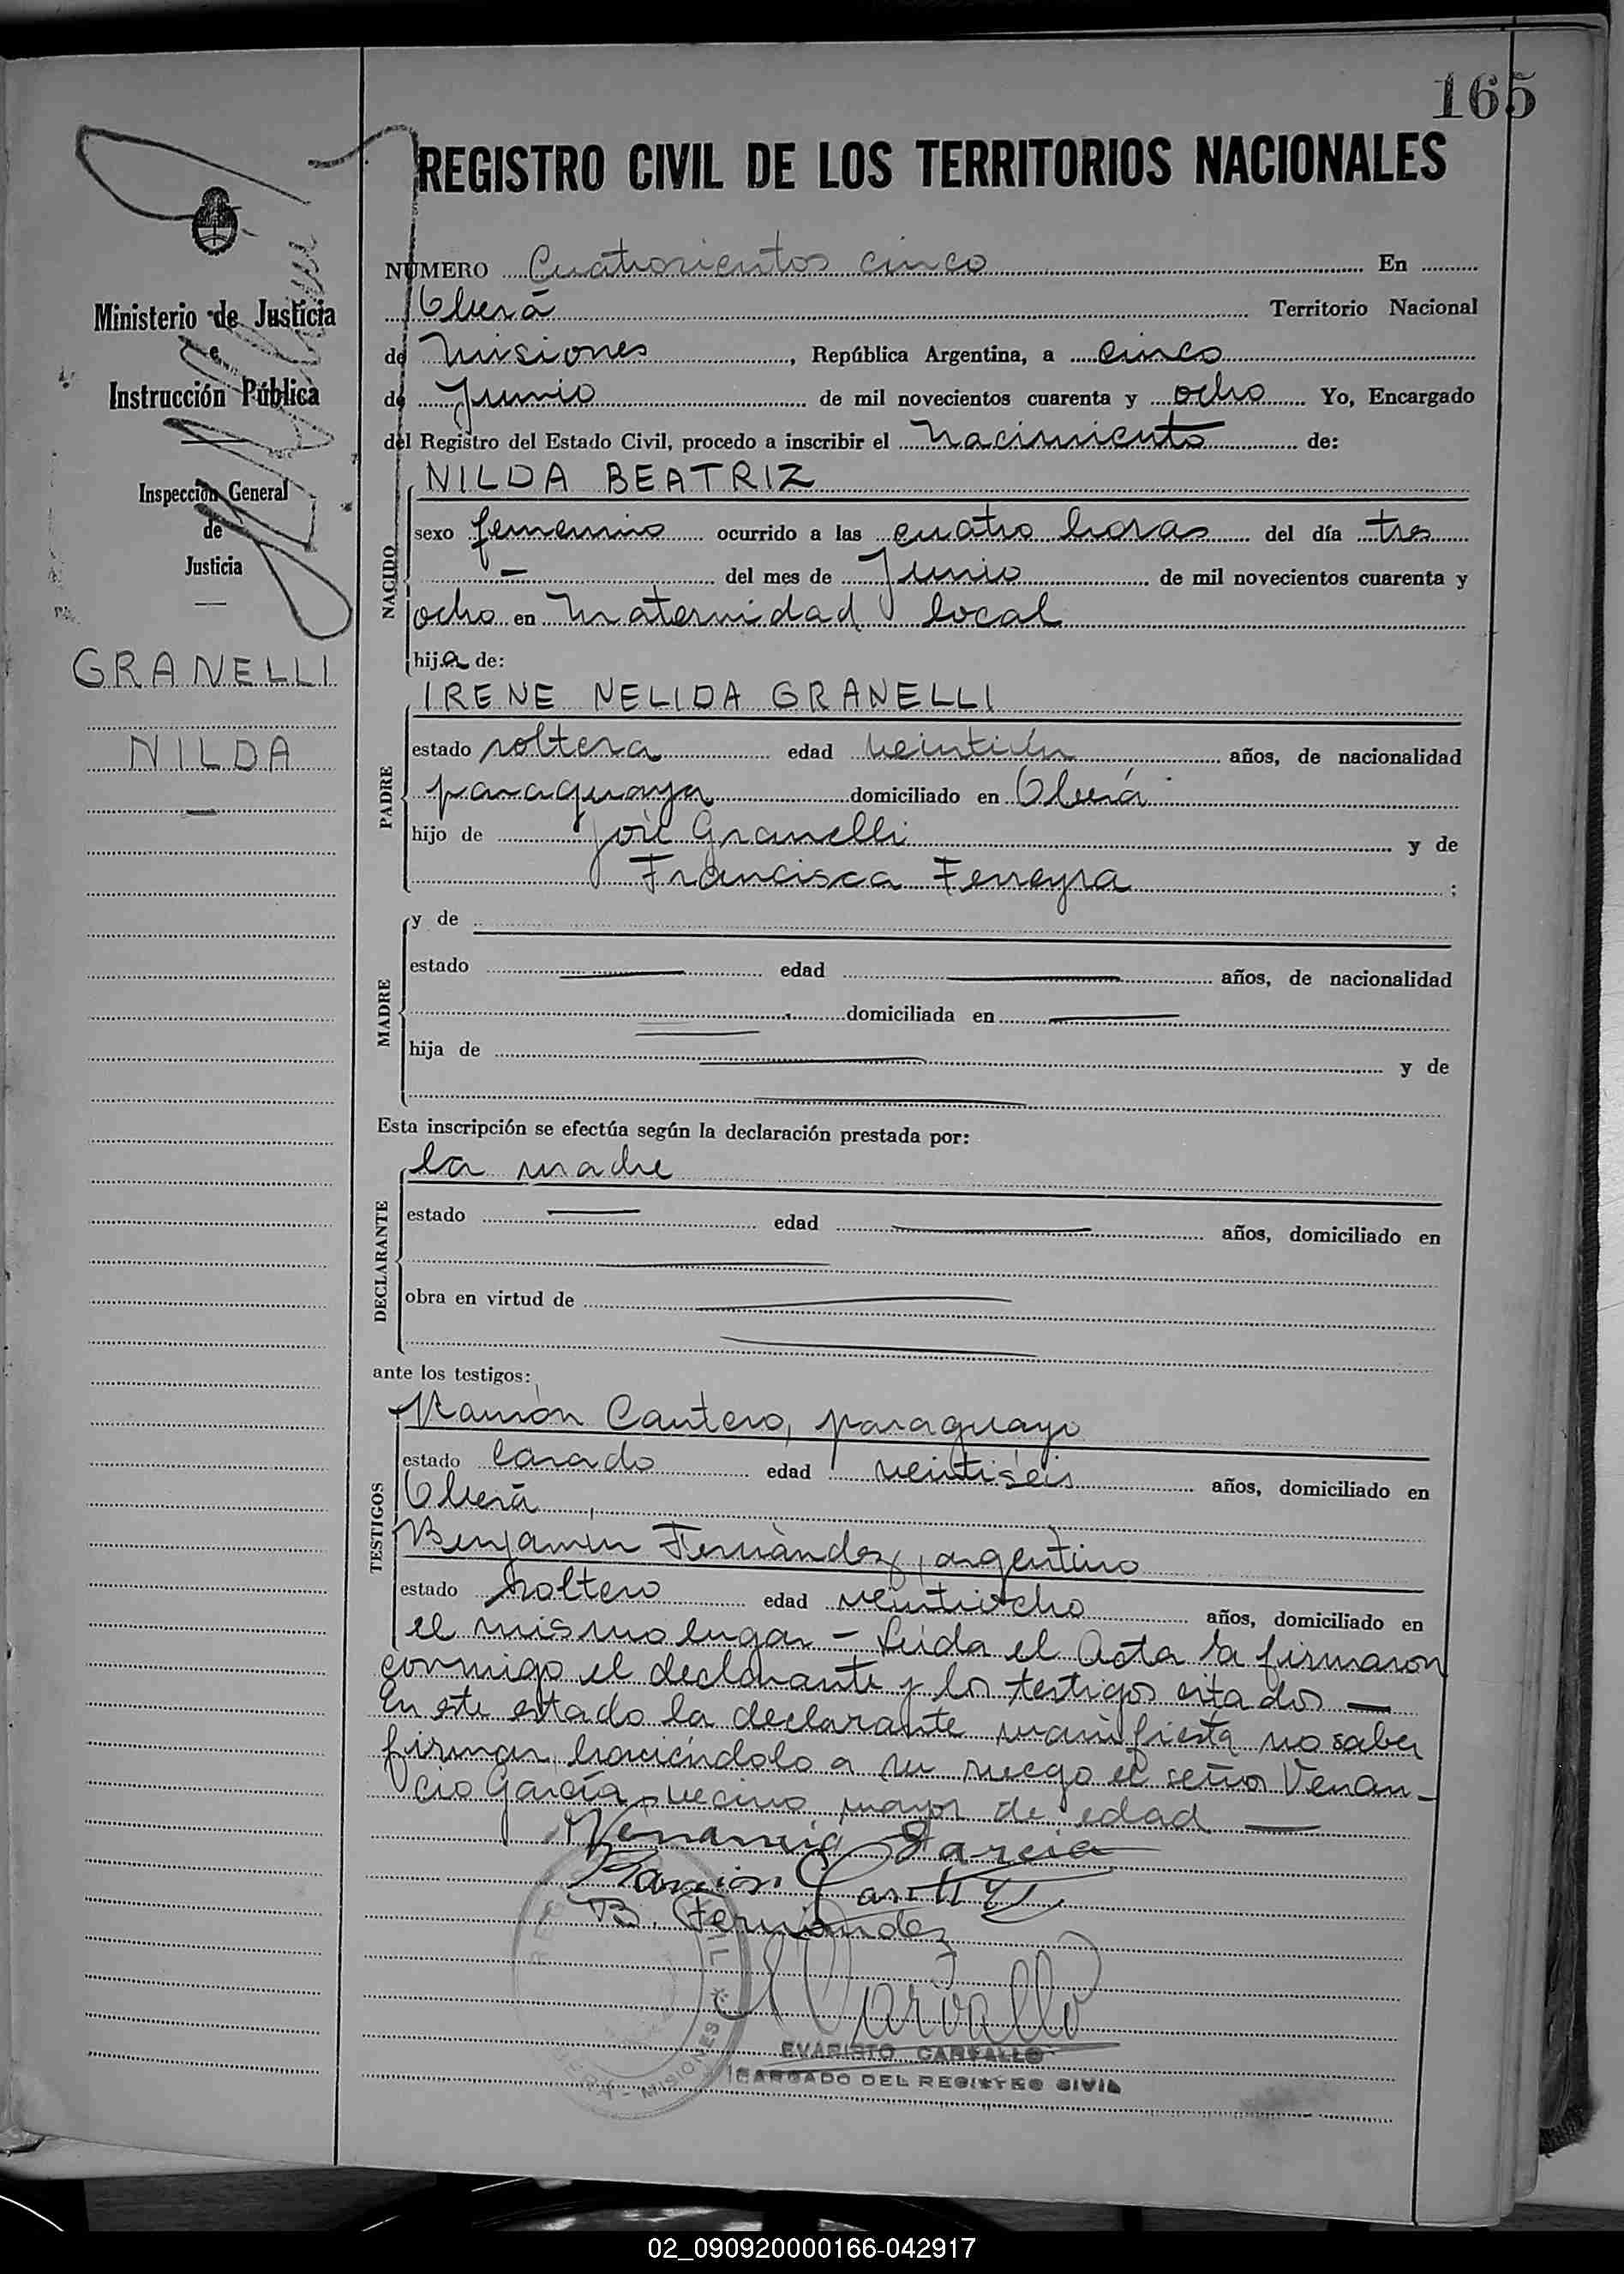 165
REGISTRO CIVIL DE LOS TERRITORIOS NACIONALES
Ministerio de Justicia
e
Instrucción Pública
Inspección General
de
Justicia
GRANELLI
NILDA
NUMERO Cuatrocientos cinco En
Oberá Territorio Nacional
de Misiones, República Argentina, a cinco
de Junio de mil novecientos cuarenta y ocho Yo, Encargado
del Registro del Estado Civil, procedo a inscribir el Nacimiento de:
NACIDO
NILDA BEATRIZ
sexo femenino ocurrido a las cuatro horas del día tres
— del mes de Junio de mil novecientos cuarenta y
ocho en Maternidad local
hija de:
PADRE
IRENE NELIDA GRANELLI
estado soltera edad veintiún años, de nacionalidad
paraguaya domiciliado en Oberá
hijo de José Granelli y de
Francisca Ferreyra ;
MADRE
y de
estado — edad — años, de nacionalidad
— domiciliada en —
hija de — y de
—
Esta inscripción se efectúa según la declaración prestada por:
DECLARANTE
la madre
estado — edad — años, domiciliado en
—
obra en virtud de —
—
ante los testigos:
TESTIGOS
Ramón Cantero, paraguayo
estado casado edad veintiséis años, domiciliado en
Oberá,
Benjamín Fernández, argentino
estado soltero edad veintiocho años, domiciliado en
el mismo lugar — Leída el Acta la firmaron
conmigo el declarante y los testigos citados —
En este estado la declarante manifiesta no saber
firmar, haciéndolo a su ruego el señor Venan-
cio García, vecino mayor de edad —
Venancio Garcia
Ramón
B. Fernandez
Carvallo
EVARISTO CARVALLO
CARGADO DEL REGISTRO CIVIL
MISIONES
02_090920000166-042917